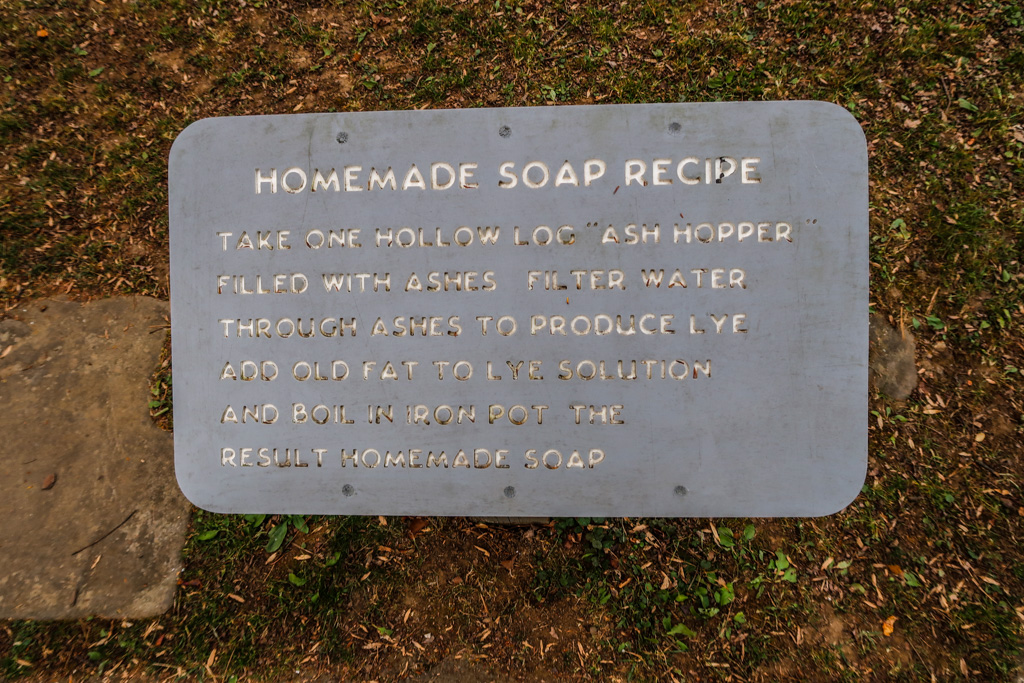 HOMEMADE SOAP RECIPE
TAKE ONE HOLLOW LOG "ASH HOPPER"
FILLED WITH ASHES FILTER WATER
THROUGH ASHES TO PRODUCE LYE
ADD OLD FAT TO LYE SOLUTION
AND BOIL IN IRON POT THE
RESULT HOMEMADE SOAP